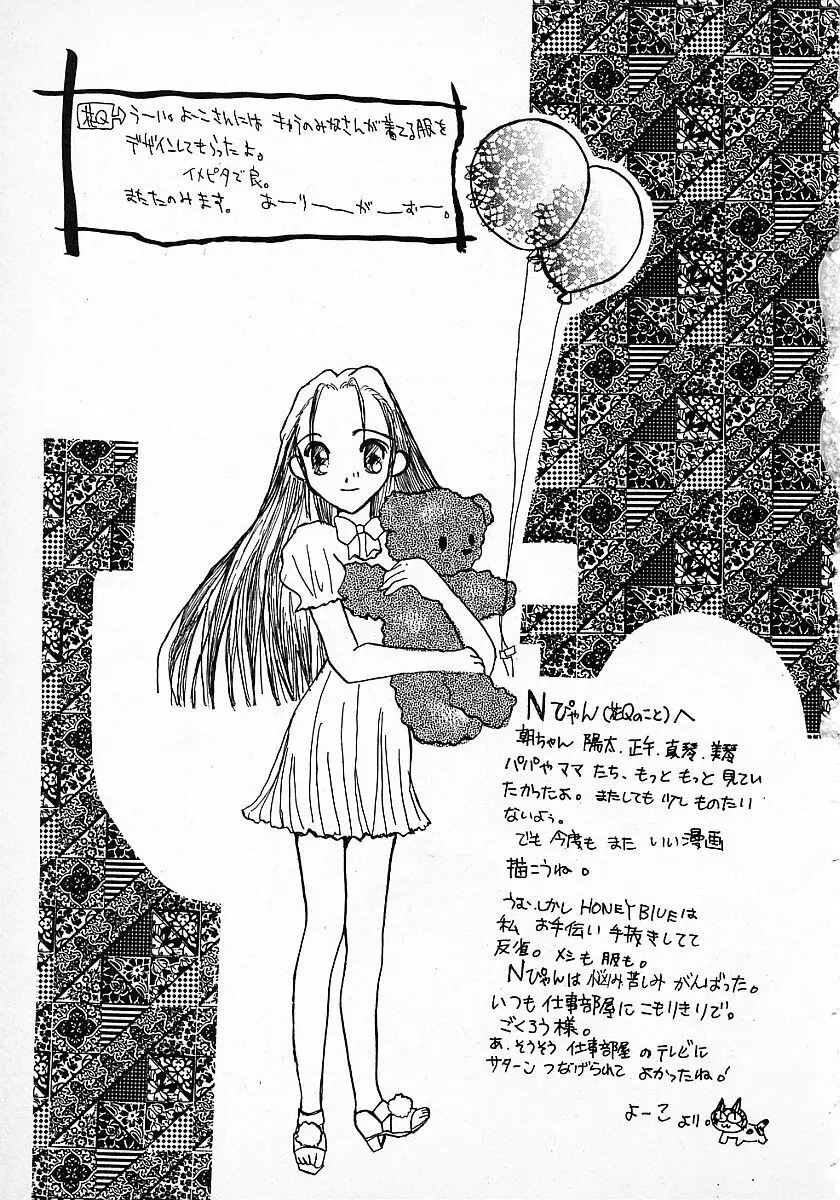 花Q→うーい。よーこさんには きゅうのみなさんが着てる服を
デザインしてもらったよ。
イメピタで良。
またたのみます。 ありーがーむー。
Nぴゃん(花Qのこと)へ
朝ちゃん 陽太、正午、真琴、美琴
パパやママ たち、もっと もっと 見てい
たかったよ。またしても 少し ものたり
ないよぅ。
でも 今度も また いい漫画
描こうね。
うむ、しかし HONEY BLUEは
私 お手伝い 手抜きしてて
反省。メシも 服も。
Nぴゃんは 悩み苦しみ がんばった。
いつも 仕事部屋に こもりきりで。
ごくろう様。
あ、そうそう 仕事部屋 の テレビに
サターン つなげられて よかったね!
よーこ より。